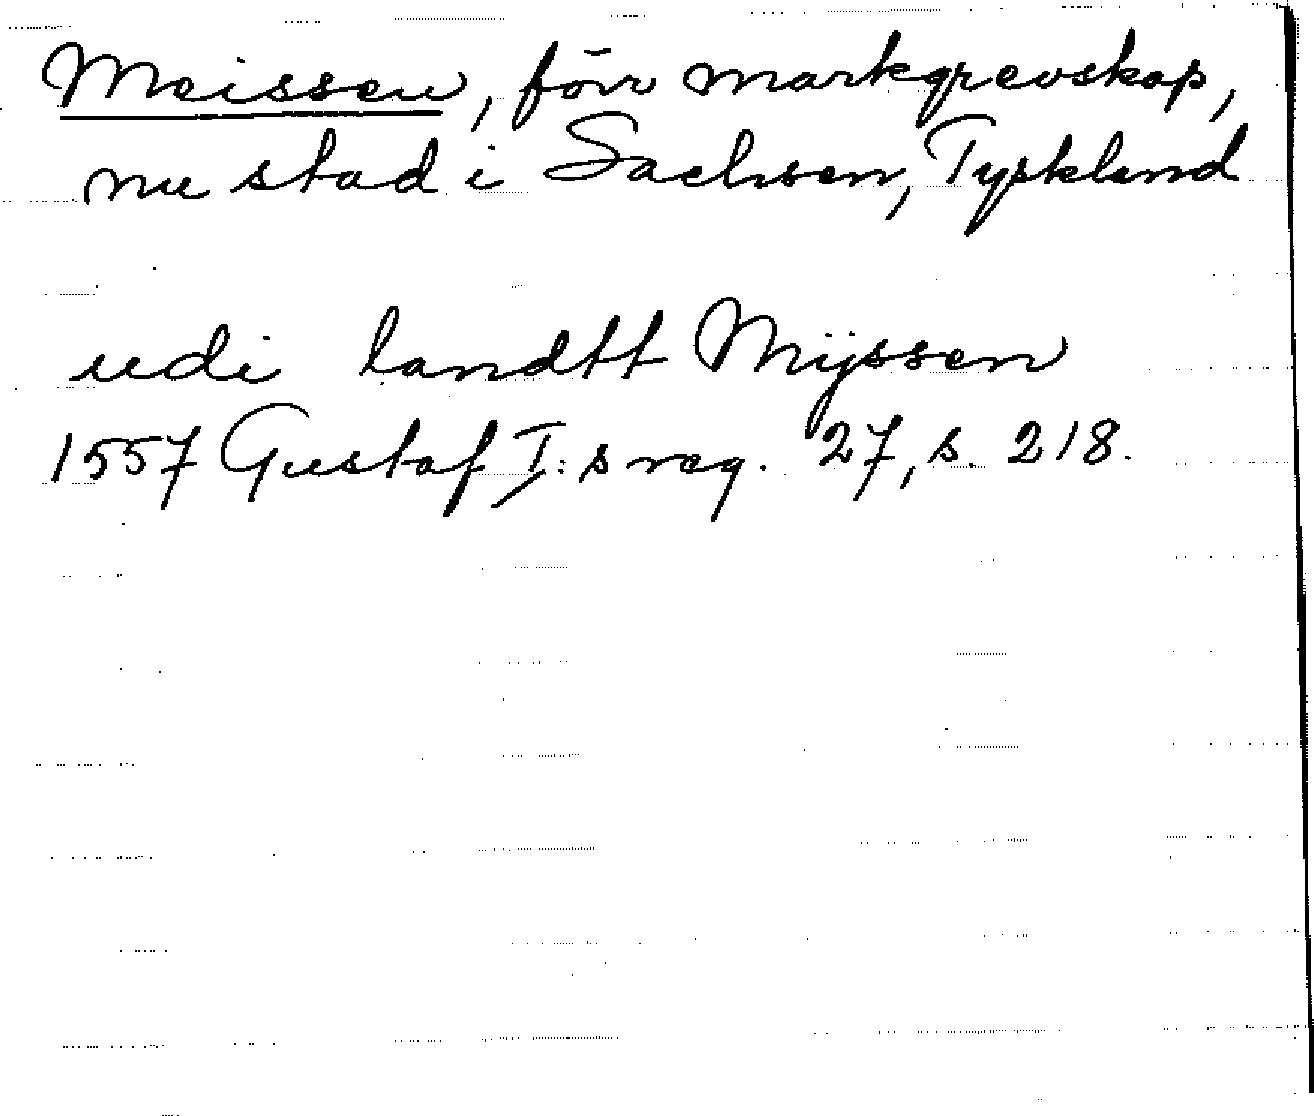 Meissen, förr markgrevskap,
nu stad i Sachsen, Tyskland
udi landtt Mÿssen
1557 Gustaf I:s reg. 27, s. 218.